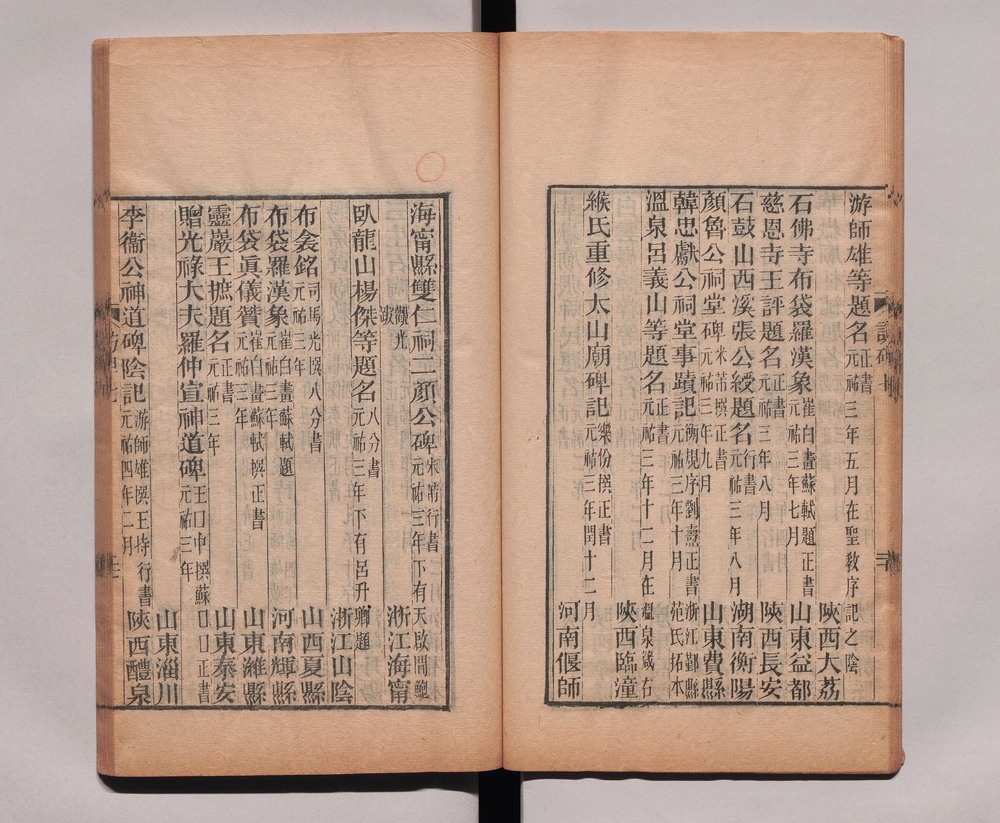 游師雄等題名正書 元祐三年五月在聖教序記之陰
陝西大荔
石佛寺布袋羅漢象崔白畫蘇軾題正書 元祐三年七月
山東益都
慈恩寺王評題名正書 元祐三年八月
陝西長安
石鼓山西溪張公綬題名行書 元祐三年八月
湖南衡陽
顏魯公祠堂碑米芾撰正書 元祐三年九月
山東費縣
韓忠獻公祠堂事蹟記 元祐三年十月
浙江鄞縣范氏拓本
溫泉呂義山等題名正書 元祐三年十二月在溫泉箴右
陝西臨潼
緱氏重修太山廟碑記樂份撰正書 元祐三年閏十二月
河南偃師
海甯縣雙仁祠二顏公碑米芾行書 元祐三年下有天啟間鮑觀光
浙江海甯
臥龍山楊傑等題名八分書 元祐三年下有呂升卿題
浙江山陰
布衾銘司馬光撰八分書 元祐三年
山西夏縣
布袋羅漢象崔白畫蘇軾題 元祐三年
河南輝縣
布袋眞儀贊崔白畫蘇軾撰正書 元祐三年
山東濰縣
靈巖王摭題名正書 元祐三年
山東泰安
贈光祿大夫羅仲宣神道碑王口中撰蘇口口正書 元祐三年
山東淄川
李衞公神道碑陰記游師雄撰王持行書 元祐四年二月
陝西醴泉